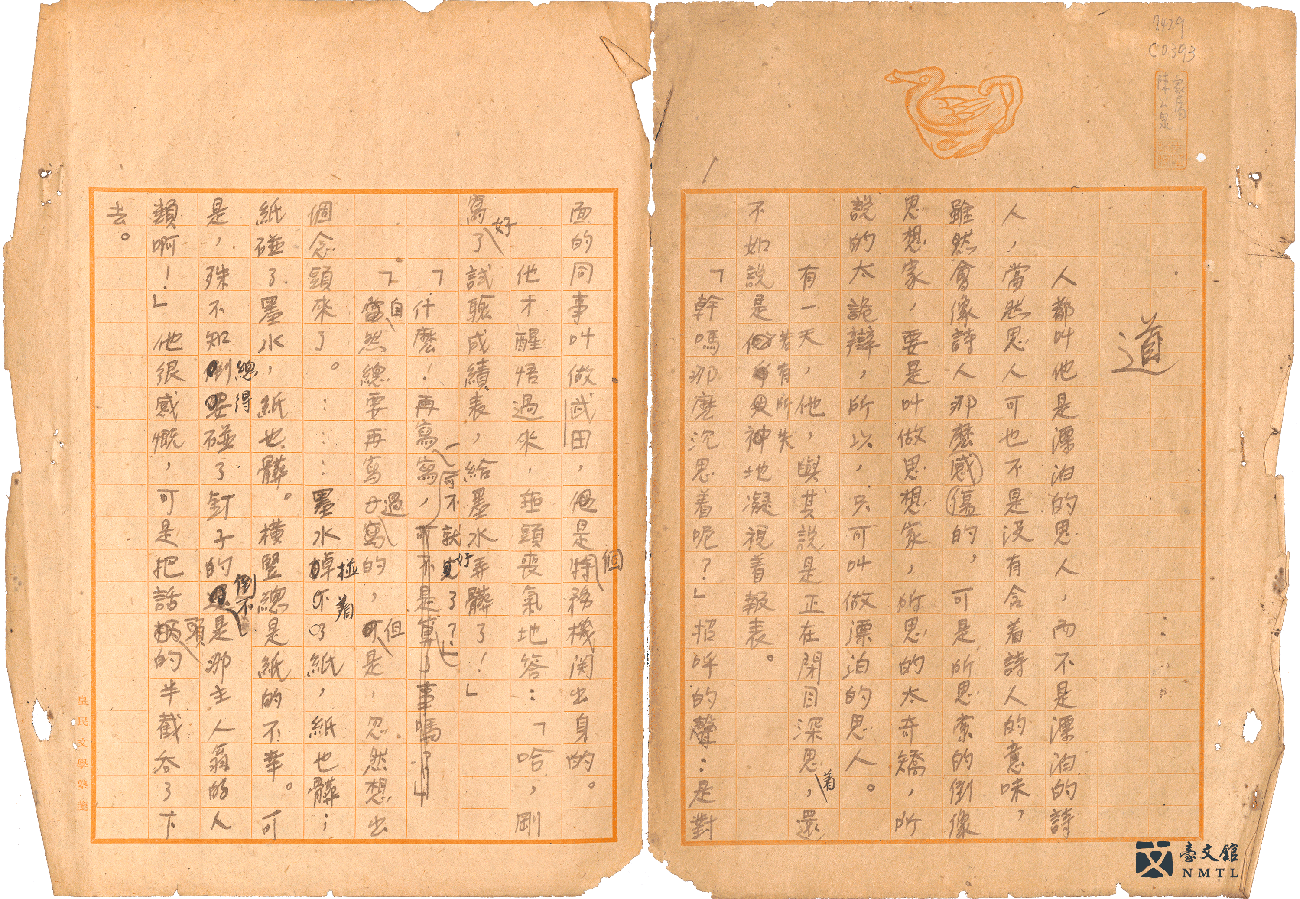 7429
CD393
道
人都叫他是漂泊的思人，而不是漂泊的詩
人，當然思人可也不是沒有含着詩人的意味，
雖然會像詩人那麼感傷的，可是所思索的倒像
思想家，要是叫做思想家，所思的太奇矯，所
說的太詭辯，所以，只可叫做漂泊的思人。
有一天，他，與其說是正在閉目深思着，還
不如說是若有所失神地凝視着報表。
「幹嗎那麼沉思着呢？」招呼的聲：是對
面的同事叫做武田，他是個特務機関出身的。
他才醒悟過來，垂頭喪氣地答：「哈，剛
寫好了試驗成績表，給墨水弄髒了！」
「什麼！再寫一寫，可不就好了？」
「自然總要再寫過的，但是，忽然想出
個念頭來了。……墨水碰着了紙，紙也髒；
紙碰了墨水，紙也髒。橫豎總是紙的不幸。可
是，殊不知總得碰了釘子的倒不是那主人翁的人
類啊！」他很感慨，可是把話頭的半截吞了下
去。
臺文館
NMTL